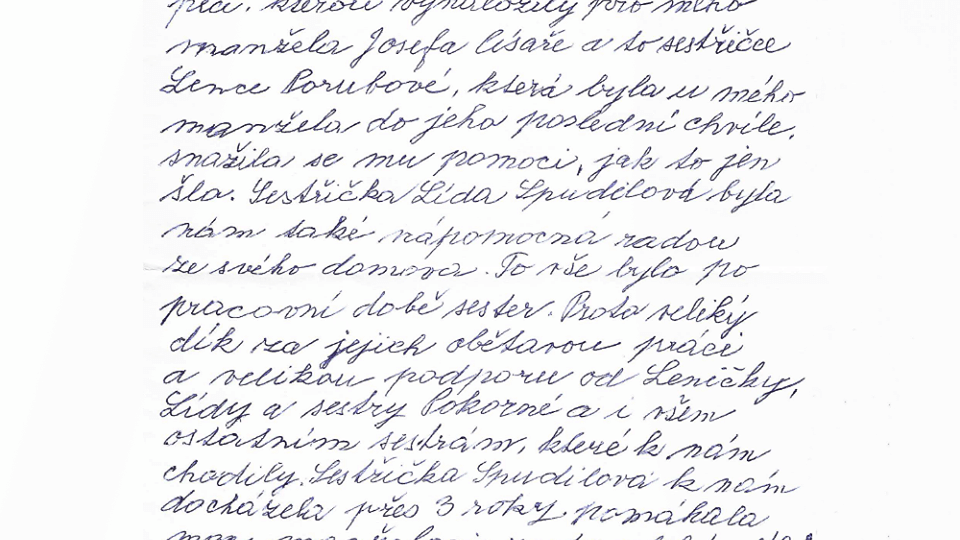 péči, kterou vynaložily pro mého
manžela Josefa lísaře a to sestřičce
Lence Porubové, která byla u mého
manžela do jeho poslední chvíle,
snažila se mu pomoci, jak to jen
šla. Sestřička Lída Spudilová byla
nám také nápomocna radou
ze svého domova. To vše bylo po
pracovní době sester. Proto veliký
dík za jejich obětavou práci
a velikou podporu od Leničky,
Lídy a sestry Pokorné a i všem
ostatním sestrám, které k nám
chodily. Sestřička Spudilová k nám
docházela přes 3 roky, pomáhala